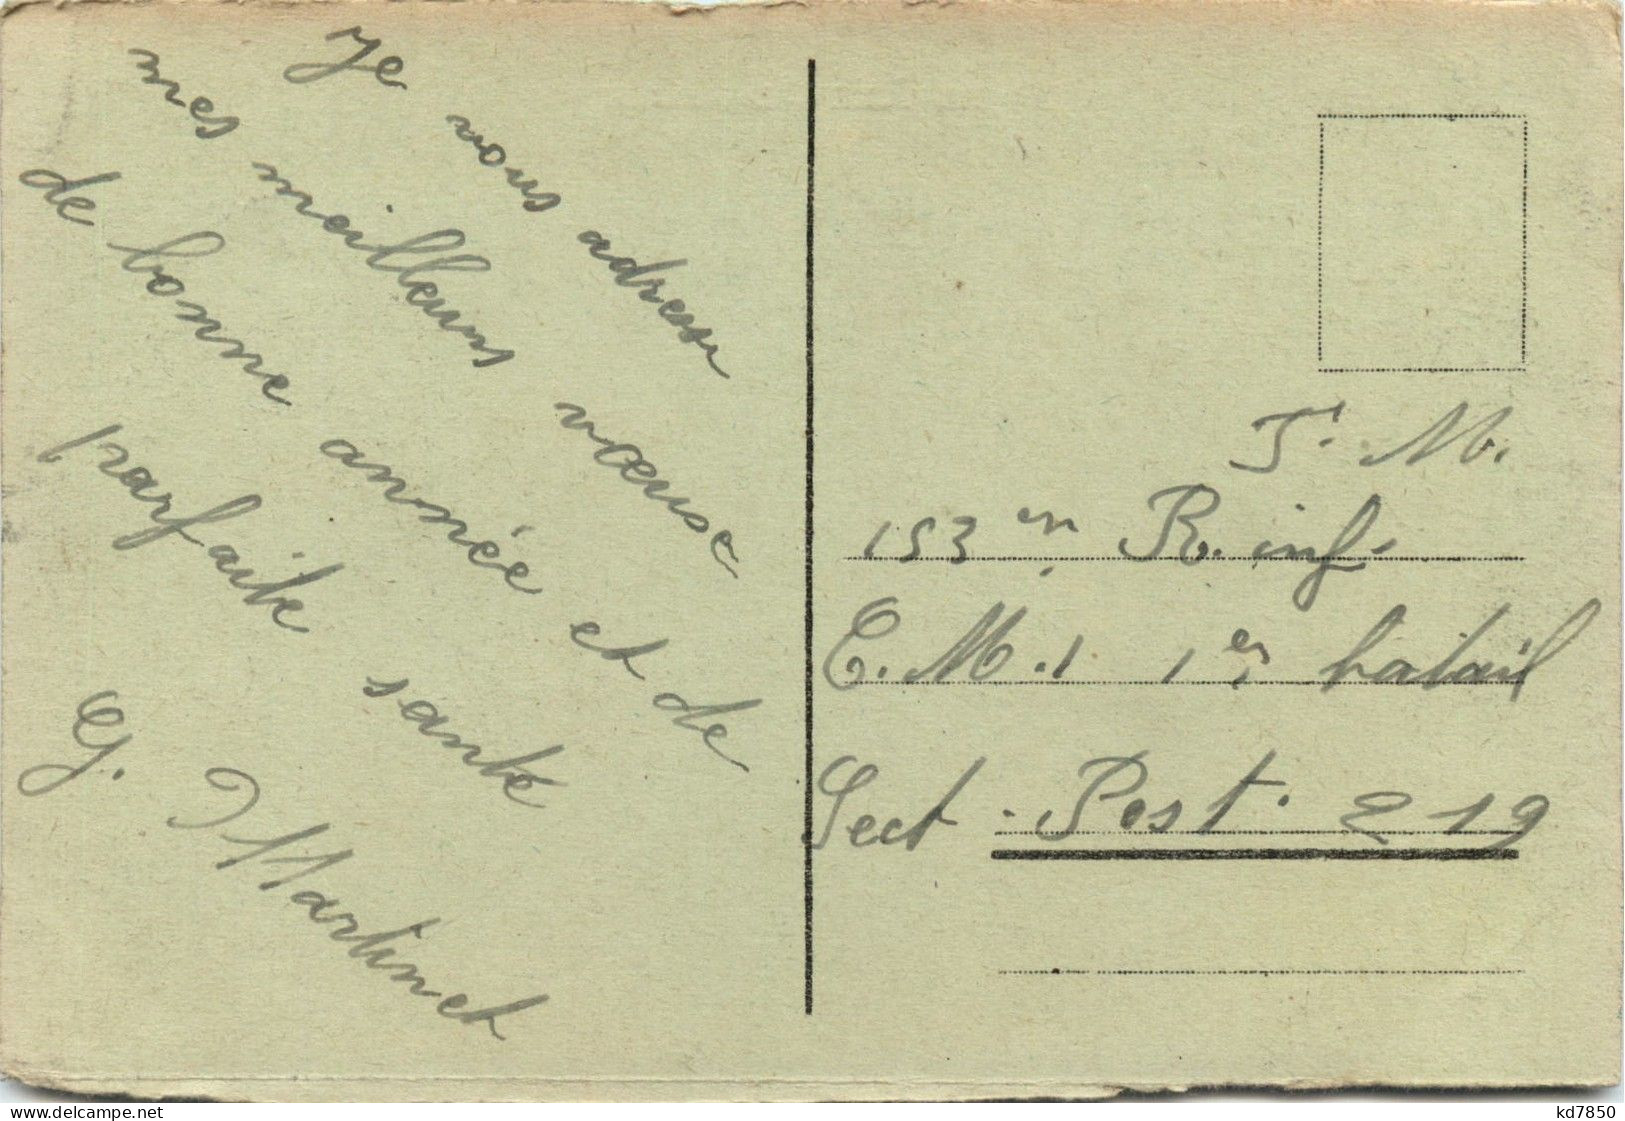 Je vous adresse
mes meilleurs voeuse
de bonne année et de
parfaite santé
G. Martinet
T. M.
153 en R. inf.
C. M. 1 1er batail
Sect. Post. 219
www.delcampe.net
kd7850